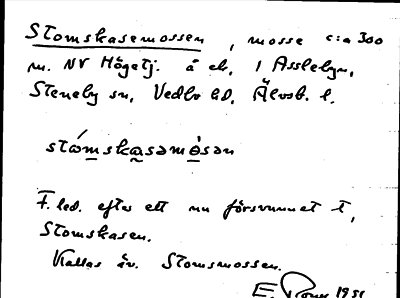 Stomskasemossen, mosse c:a 300
m. NV Högetj. å ek, i Assleby,
Steneby sn, Vedbo hd, Älvsb. l.
stómskasəmòsən
F. led. efter ett nu försvunnet t,
Stomskasen.
Kallas äv. Stomsmossen.
E. 19